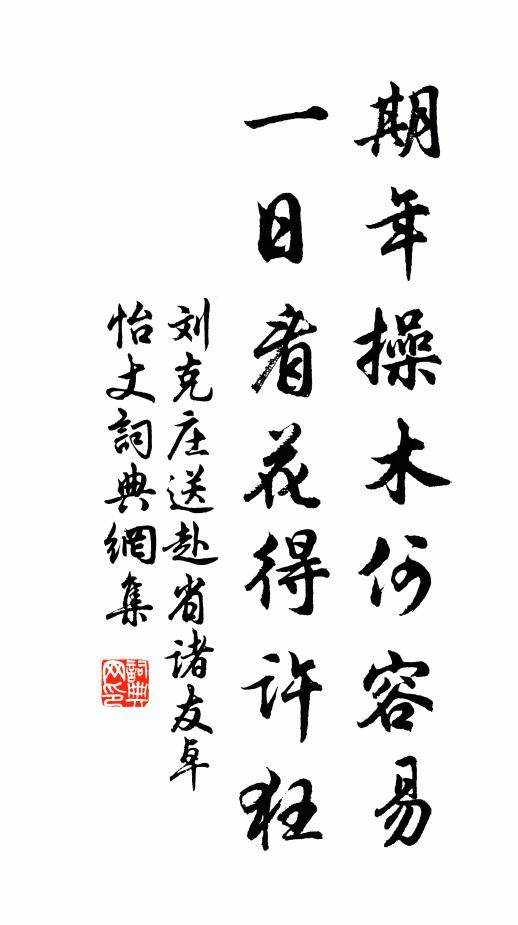 期年操木何容易
一日看花得许狂
刘克庄送赴省诸友卓
怡丈詞典網集
詞典网印